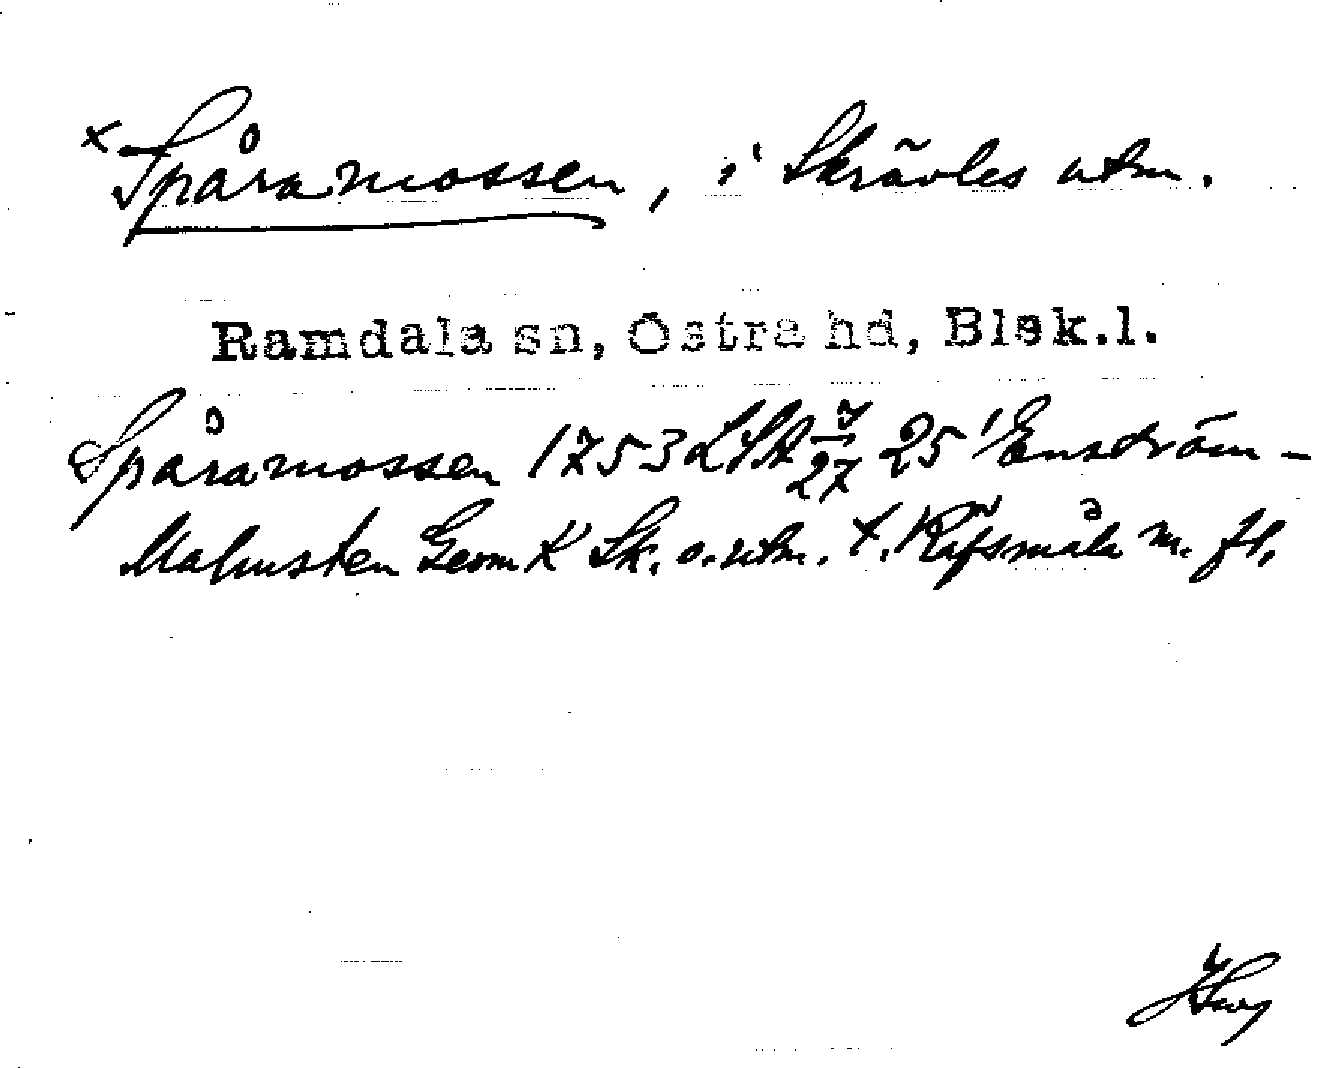 × Spåramossen, i Skrävles utm.
Ramdala sn, Östra hd, Blek.l.
Spåramossen 1753 LSA 7/27 25' Enström-
Malmsten Geom K Sk. o. utm. t. Räfsmåla m. fl.